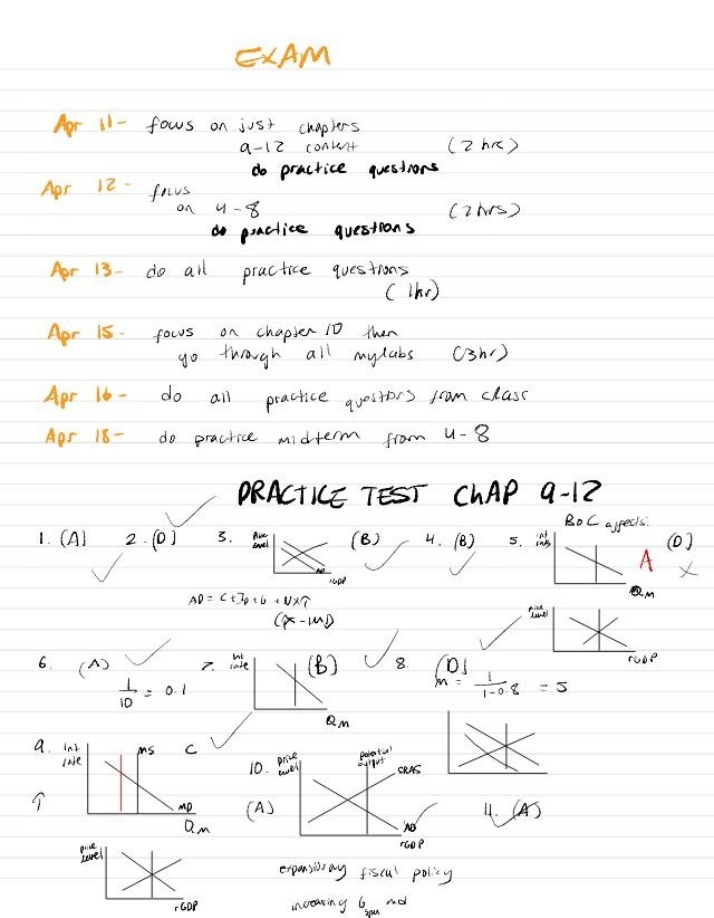 EXAM
Apr 11- focus on just chapters
9-12 content (2 hrs)
do practice questions
Apr 12- focus
on 4-8 (2hrs)
do practice questions
Apr 13- do all practice questions
(1hr)
Apr 15- focus on chapter 10 then
go through all mylabs (3hr)
Apr 16- do all practice questions from class
Apr 18- do practice midterm from 4-8
PRACTICE TEST CHAP 9-12
BoC affects:
1. (A) 2. (D) 3. Price level AD rGDP (B) 4. (B) 5. int Q M A (D)
AD = C+Ip+G+NXT
(X-IM)
price level rGDP
6. (A) 7. Int rate Q M (B) 8. (D)
1/10 = 0.1
m = 1/1-0.8 = 5
9. Int rate MS MD Q M C
10. price level potential output SRAS AD rGDP
↑ (A) 11. (A)
price level rGDP
expansionary fiscal policy
increasing G